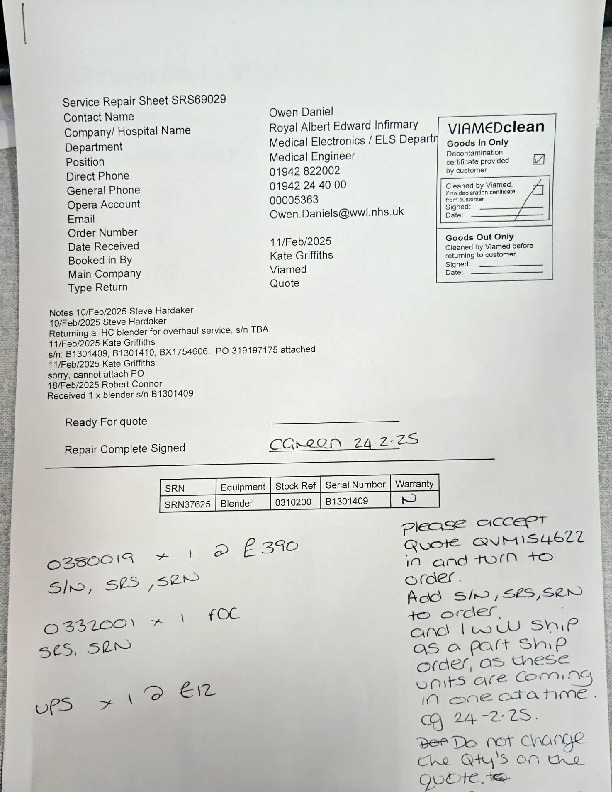 Service Repair Sheet SRS69029
Contact Name Owen Daniel
Company/ Hospital Name Royal Albert Edward Infirmary
Department Medical Electronics / ELS Departm
Position Medical Engineer
Direct Phone 01942 822002
General Phone 01942 24 40 00
Opera Account 00005363
Email Owen.Daniels@wwl.nhs.uk
Order Number
Date Received 11/Feb/2025
Booked in By Kate Griffiths
Main Company Viamed
Type Return Quote
VIAMEDclean
Goods In Only
Decontamination
certificate provided
by customer
Cleaned by Viamed,
if no decontamination certificate
from customer
Signed:
Date:
Goods Out Only
Cleaned by Viamed before
returning to customer
Signed:
Date:
Notes 10/Feb/2025 Steve Hardaker
10/Feb/2025 Steve Hardaker
Returning a HC blender for overhaul service, s/n TBA
11/Feb/2025 Kate Griffiths
s/n: B1301409, B1301410, BX1754606. PO 319197175 attached
11/Feb/2025 Kate Griffiths
sorry, cannot attach PO
18/Feb/2025 Robert Connor
Received 1 x blender s/n B1301409
Ready For quote
Repair Complete Signed 24-2-25
SRN Equipment Stock Ref Serial Number Warranty
SRN37625 Blender 0310200 B1301409 N
0380019 x 1 @ £390
S/N, SRS, SRN
0332001 x 1 FOC
SRS, SRN
UPS x 1 @ £12
Please accept
Quote QVM154622
in and turn to
order.
Add S/N, SRS, SRN
to order.
and I will ship
as a part ship
order, as these
units are coming
in one at a time.
cg 24-2-25.
Do not change
the Qty's on the
quote.